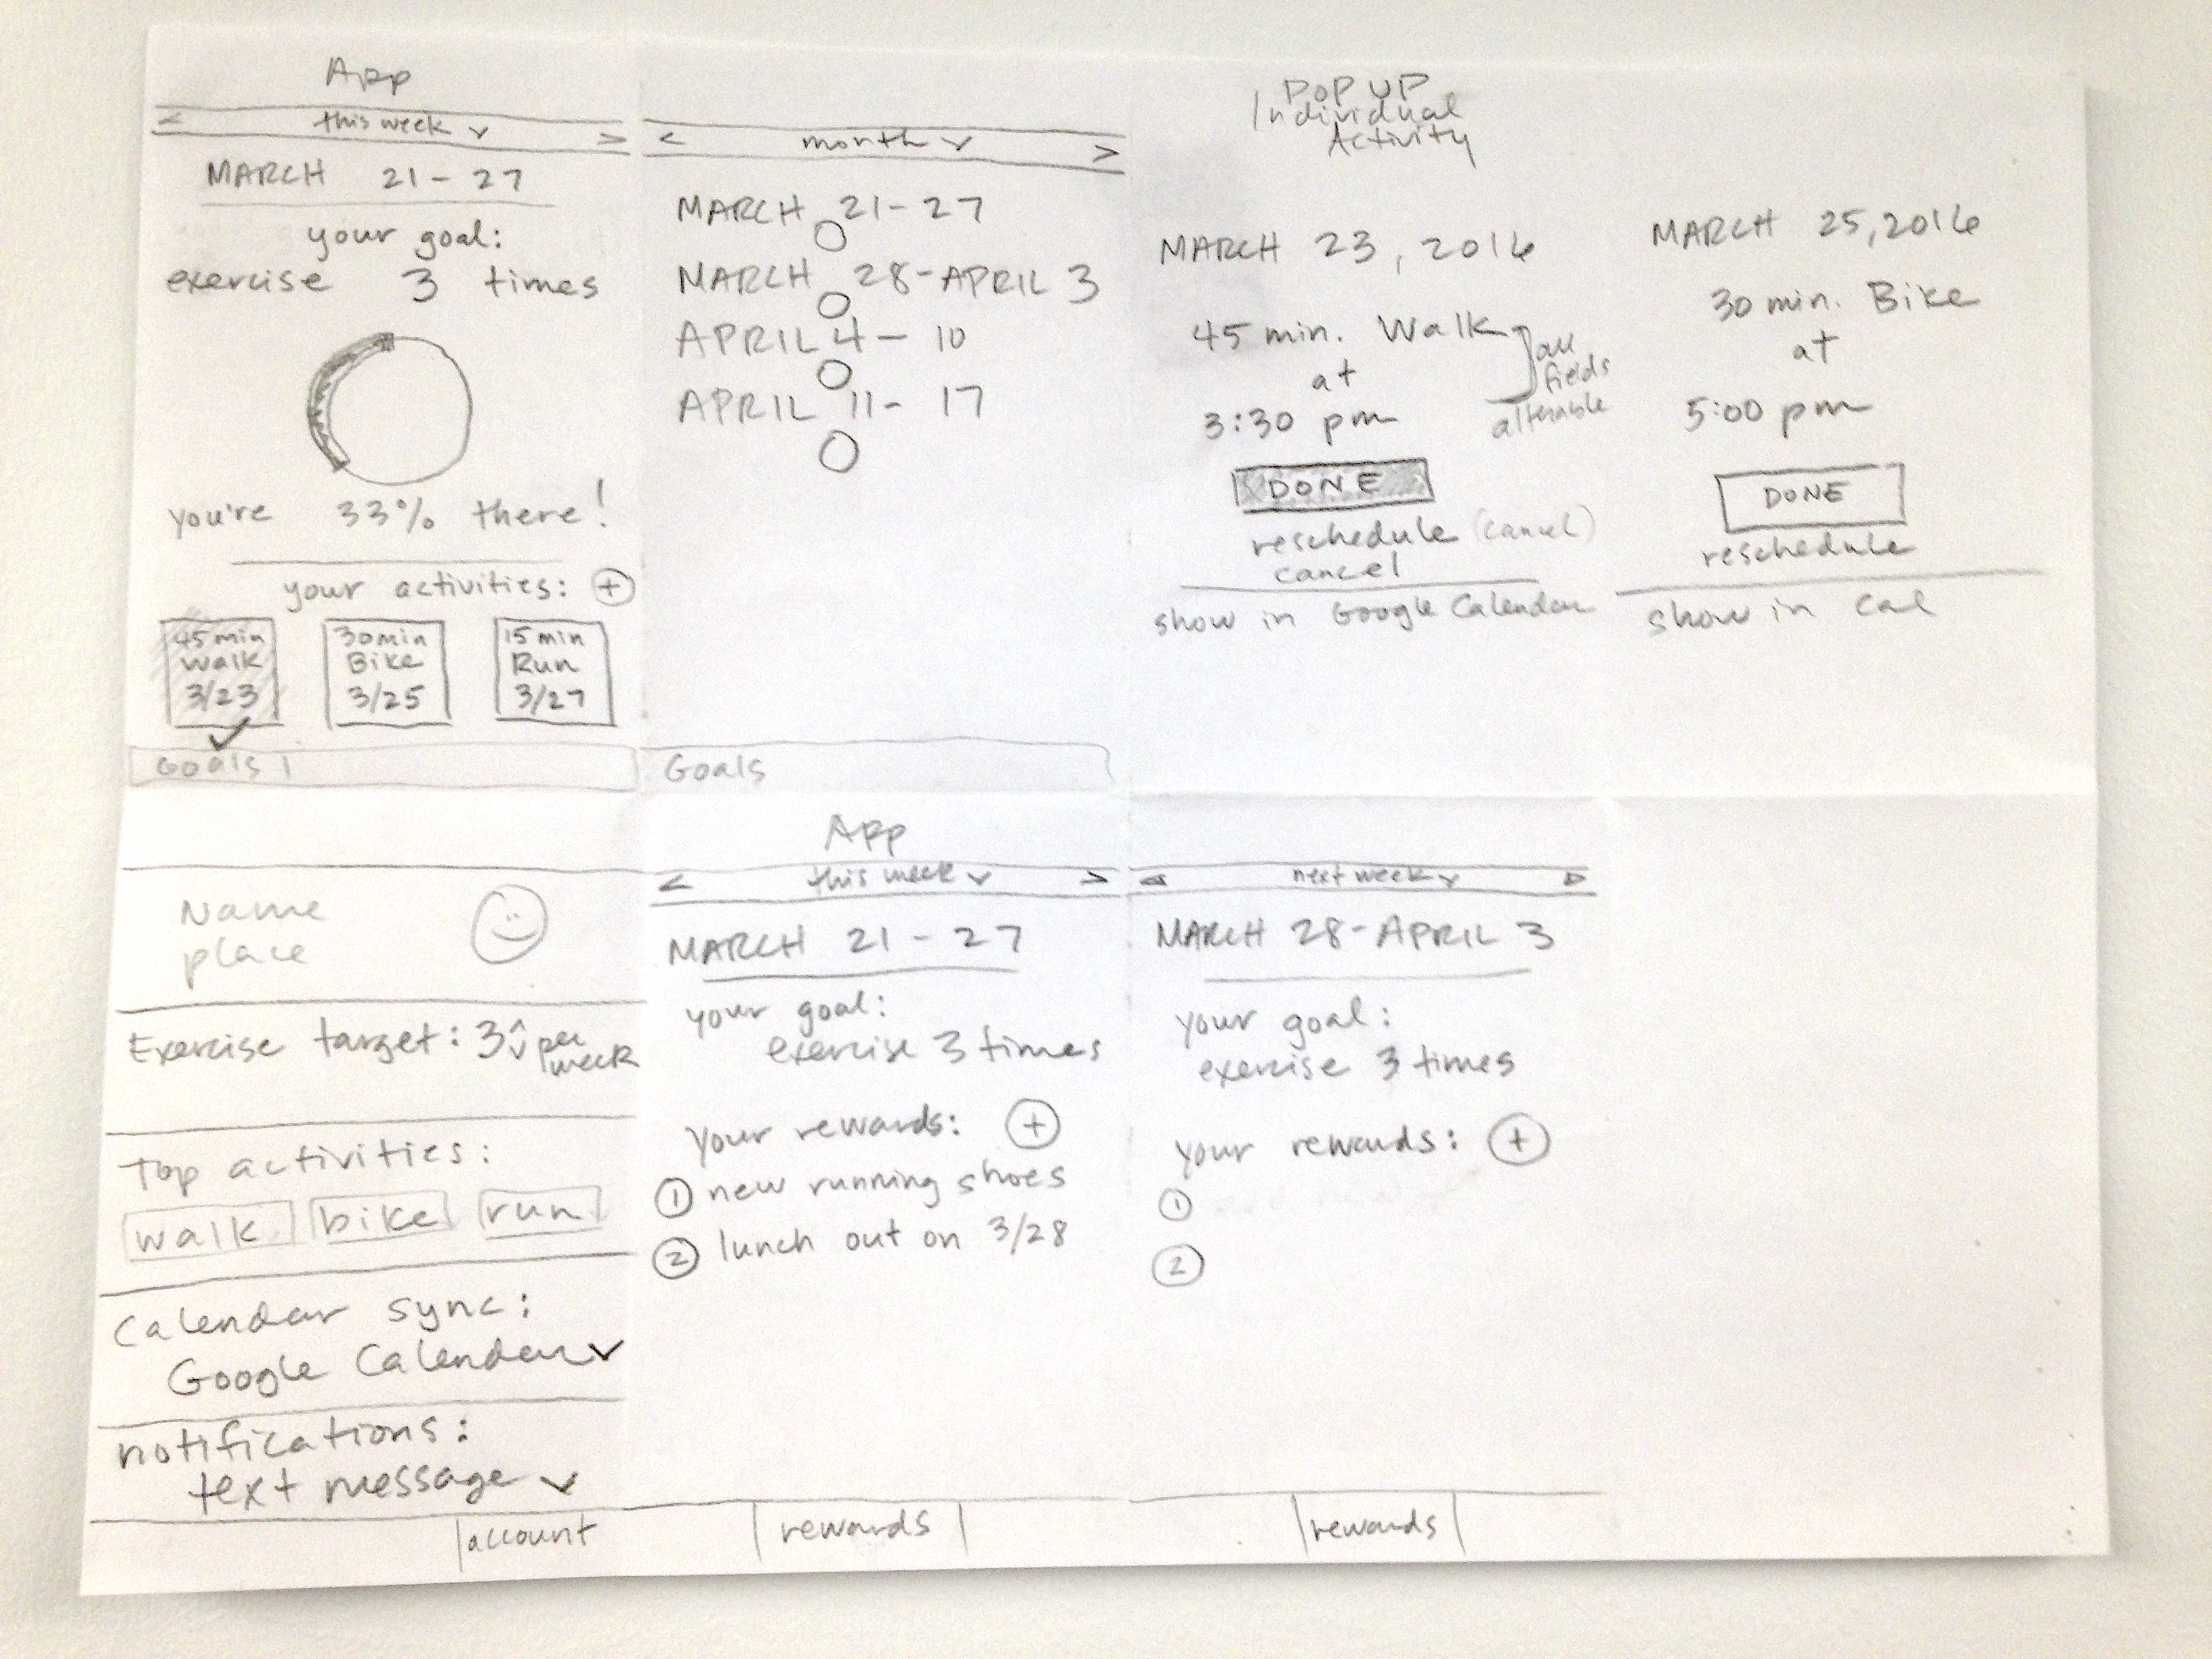 App
< this week ∨ >
MARCH 21 - 27
your goal:
exercise 3 times
you're 33% there!
your activities: +
45 min
Walk
3/23
30 min
Bike
3/25
15 min
Run
3/27
Goals
< month ∨ >
MARCH 21 - 27
MARCH 28 - APRIL 3
APRIL 4 - 10
APRIL 11 - 17
Goals
POP UP
Individual
Activity
MARCH 23, 2016
45 min. Walk
at
3:30 pm
all
fields
alterable
DONE
reschedule (cancel)
cancel
show in Google Calendar
MARCH 25, 2016
30 min. Bike
at
5:00 pm
DONE
reschedule
show in Cal
Name
place
Exercise target: 3 per
week
Top activities:
walk bike run
Calendar sync:
Google Calendar ∨
notifications:
text message ∨
account
App
< this week ∨ >
MARCH 21 - 27
your goal:
exercise 3 times
your rewards: +
1 new running shoes
2 lunch out on 3/28
rewards
< next week ∨ >
MARCH 28 - APRIL 3
your goal:
exercise 3 times
your rewards: +
1
2
rewards